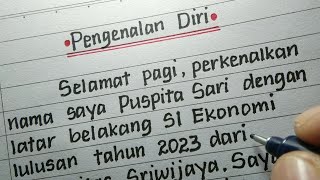 • Pengenalan Diri •
Selamat pagi, perkenalkan
nama saya Puspita Sari dengan
latar belakang S1 Ekonomi
lulusan tahun 2023 dari
Sriwijaya. Saya